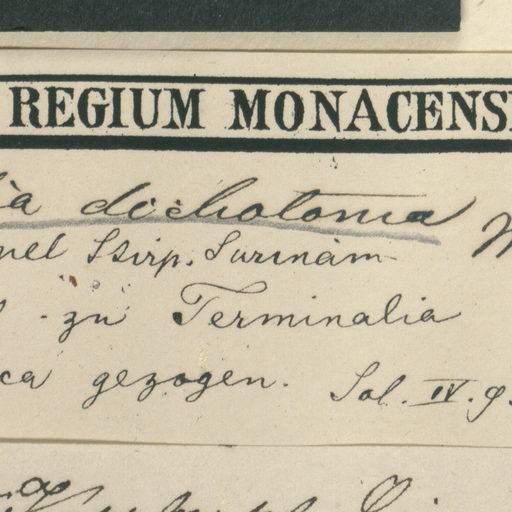 REGIUM MONACENS
ia dichotoma
Stirp. Surinam
zu Terminalia
gezogen. Sol. IV. 9.